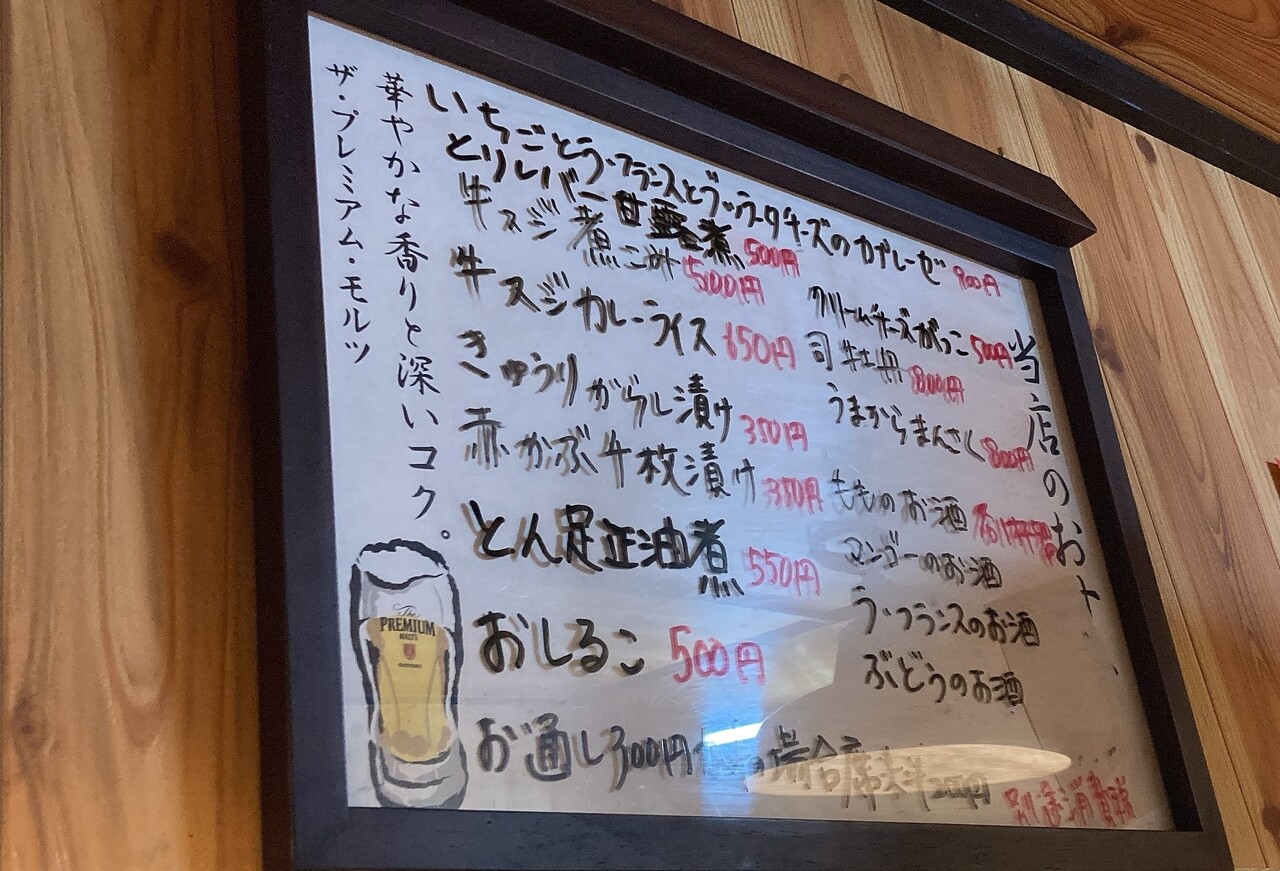 華やかな香りと深いコク。
ザ・プレミアム・モルツ
The PREMIUM MALT'S
当店のおト
いちごとラ・フランスとブッラータチーズのカプレーゼ 900円
とりレバー甘露煮 500円
牛スジ煮こみ 500円
牛スジカレーライス 650円
きゅうりがらし漬け 350円
赤かぶ千枚漬け 350円
とん足正油煮 550円
おしるこ 500円
クリームチーズがっこ 500円
司牡丹 800円
うまからまんさく 800円
もものお酒
マンゴーのお酒
ラ・フランスのお酒
ぶどうのお酒
お通し300円 の場合席料200円
別途消費税